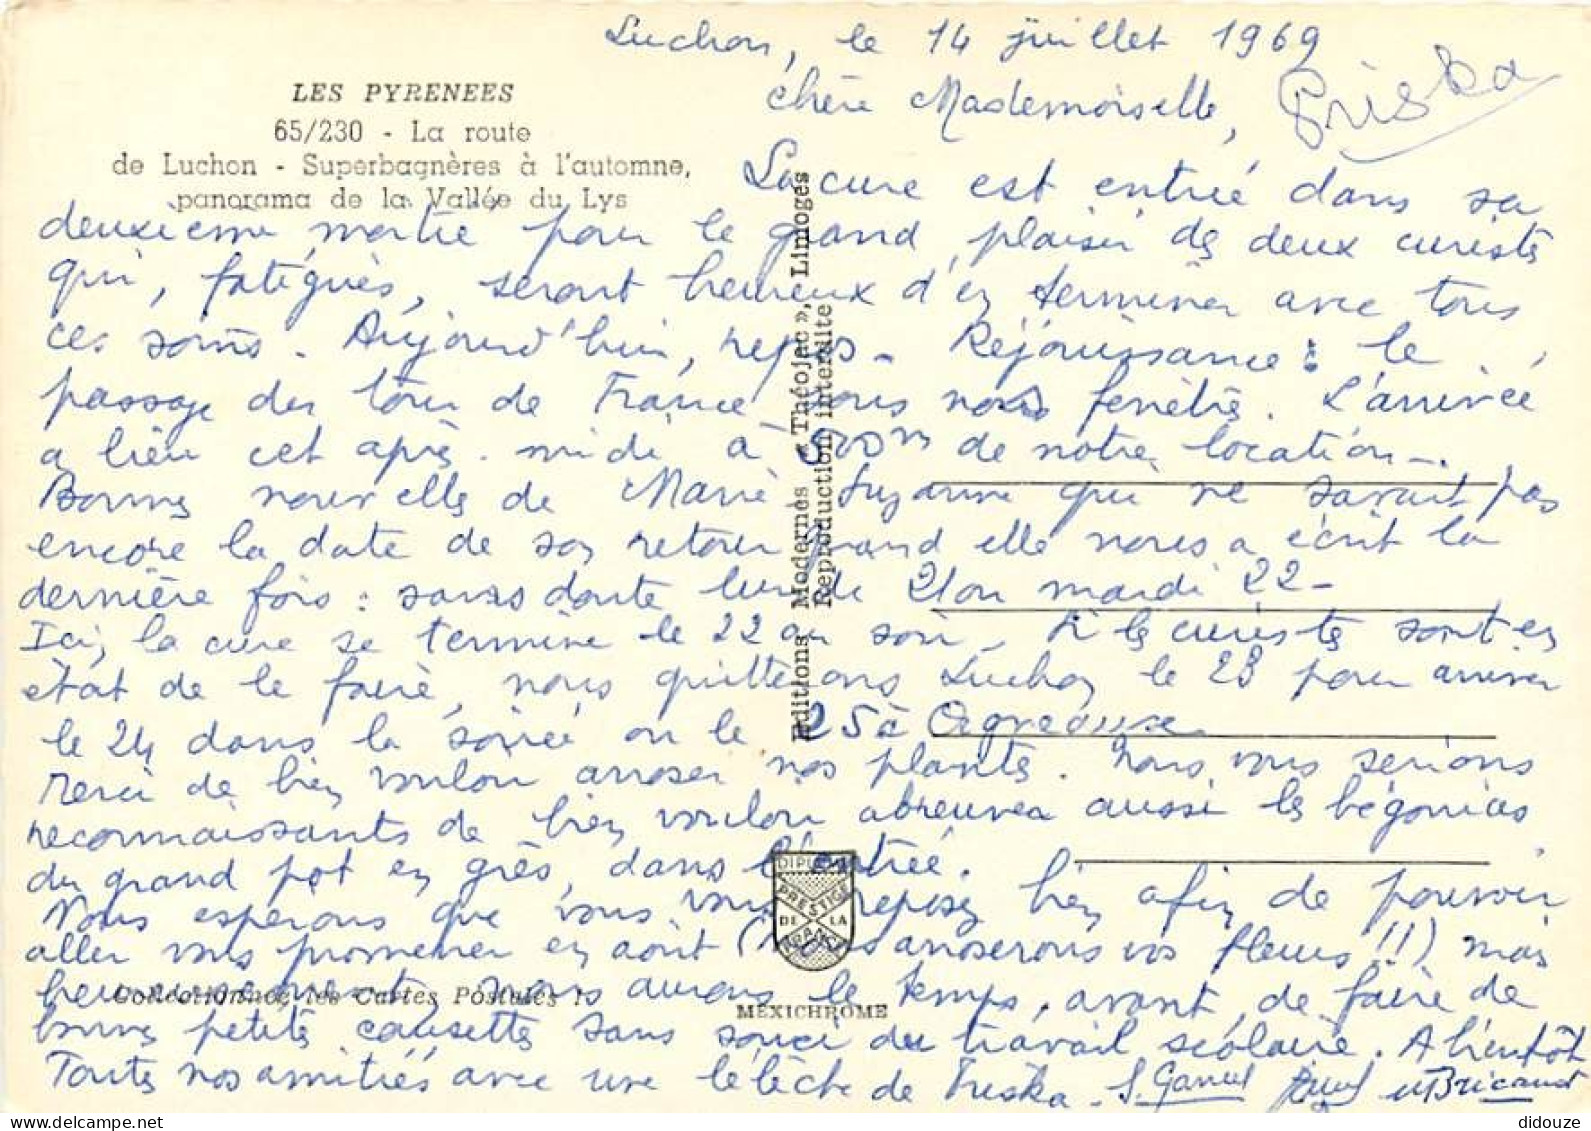 Luchon, le 14 juillet 1969
LES PYRENEES
65/230 - La route
de Luchon - Superbagnères à l'automne,
panorama de la Vallée du Lys
chère Mademoiselle,
Priska
La cure est entrée dans sa
deuxième moitié pour le grand plaisir de deux curistes
qui, fatigués, seront heureux d'en terminer avec tous
ces soins. Aujourd'hui, repos - Réjouissance : le
passage du tour de France sous nos fenêtres. L'arrivée
a lieu cet après-midi à 500m de notre location -.
Bonnes nouvelles de Marie Suzanne qui ne savait pas
encore la date de son retour quand elle nous a écrit la
dernière fois : sans doute lundi 21 ou mardi 22 -
Ici, la cure se termine le 22 au soir. Si les curistes sont en
état de le faire, nous quitterons Luchon le 23 pour arriver
le 24 dans la soirée ou le 25 à
Merci de bien vouloir arroser nos plantes. Nous vous serions
reconnaissants de bien vouloir abreuver aussi les bégonias
du grand pot en grès, dans l'entrée.
Nous espérons que vous vous reposez bien afin de pouvoir
aller vous promener en août (nous arroserons vos fleurs !!) mais
heureusement, nous aurons le temps, avant, de faire de
bonnes petites causettes sans souci du travail scolaire. A bientôt
Toutes nos amitiés avec une lèche de Priska - S.
Editions Modernes « Théojac », Limoges
Reproduction interdite
DIPLOME
PRESTIGE
DE LA
FRANCE
Collectionnez les Cartes Postales !
MEXICHROME
didouze